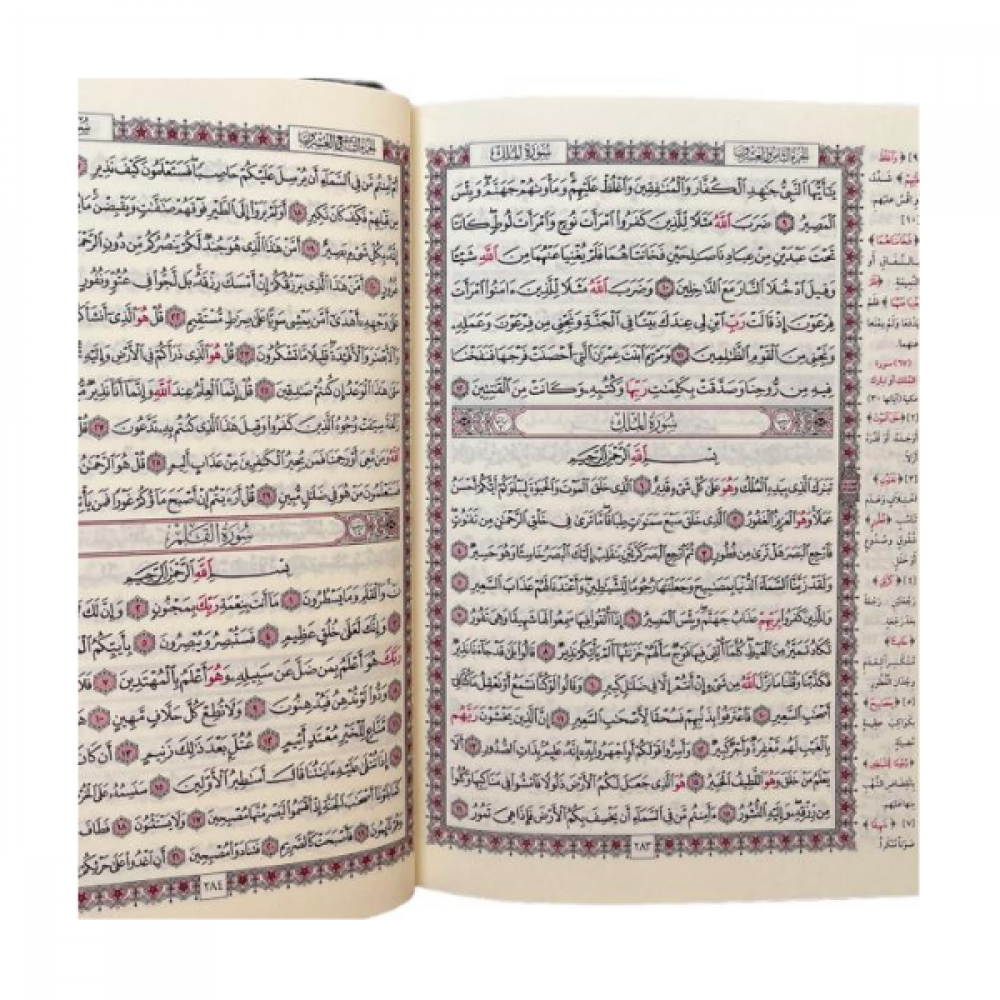 الجزء الثامن والعشرون
سورة الملك
يَٰٓأَيُّهَا ٱلنَّبِيُّ جَٰهِدِ ٱلۡكُفَّارَ وَٱلۡمُنَٰفِقِينَ وَٱغۡلُظۡ عَلَيۡهِمۡۚ وَمَأۡوَىٰهُمۡ جَهَنَّمُۖ وَبِئۡسَ
ٱلۡمَصِيرُ ٩ ضَرَبَ ٱللَّهُ مَثَلٗا لِّلَّذِينَ كَفَرُواْ ٱمۡرَأَتَ نُوحٖ وَٱمۡرَأَتَ لُوطٖۖ كَانَتَا
تَحۡتَ عَبۡدَيۡنِ مِنۡ عِبَادِنَا صَٰلِحَيۡنِ فَخَانَتَاهُمَا فَلَمۡ يُغۡنِيَا عَنۡهُمَا مِنَ ٱللَّهِ شَيۡـٔٗا
وَقِيلَ ٱدۡخُلَا ٱلنَّارَ مَعَ ٱلدَّٰخِلِينَ ١٠ وَضَرَبَ ٱللَّهُ مَثَلٗا لِّلَّذِينَ ءَامَنُواْ ٱمۡرَأَتَ
فِرۡعَوۡنَ إِذۡ قَالَتۡ رَبِّ ٱبۡنِ لِي عِندَكَ بَيۡتٗا فِي ٱلۡجَنَّةِ وَنَجِّنِي مِن فِرۡعَوۡنَ وَعَمَلِهِۦ
وَنَجِّنِي مِنَ ٱلۡقَوۡمِ ٱلظَّٰلِمِينَ ١١ وَمَرۡيَمَ ٱبۡنَتَ عِمۡرَٰنَ ٱلَّتِيٓ أَحۡصَنَتۡ فَرۡجَهَا فَنَفَخۡنَا
فِيهِ مِن رُّوحِنَا وَصَدَّقَتۡ بِكَلِمَٰتِ رَبِّهَا وَكُتُبِهِۦ وَكَانَتۡ مِنَ ٱلۡقَٰنِتِينَ ١٢
سُورَةُ المُلكِ
بِسۡمِ ٱللَّهِ ٱلرَّحۡمَٰنِ ٱلرَّحِيمِ
تَبَٰرَكَ ٱلَّذِي بِيَدِهِ ٱلۡمُلۡكُ وَهُوَ عَلَىٰ كُلِّ شَيۡءٖ قَدِيرٌ ١ ٱلَّذِي خَلَقَ ٱلۡمَوۡتَ وَٱلۡحَيَوٰةَ لِيَبۡلُوَكُمۡ أَيُّكُمۡ أَحۡسَنُ
عَمَلٗاۚ وَهُوَ ٱلۡعَزِيزُ ٱلۡغَفُورُ ٢ ٱلَّذِي خَلَقَ سَبۡعَ سَمَٰوَٰتٖ طِبَاقٗاۖ مَّا تَرَىٰ فِي خَلۡقِ ٱلرَّحۡمَٰنِ مِن تَفَٰوُتٖۖ
فَٱرۡجِعِ ٱلۡبَصَرَ هَلۡ تَرَىٰ مِن فُطُورٖ ٣ ثُمَّ ٱرۡجِعِ ٱلۡبَصَرَ كَرَّتَيۡنِ يَنقَلِبۡ إِلَيۡكَ ٱلۡبَصَرُ خَاسِئٗا وَهُوَ حَسِيرٞ ٤
وَلَقَدۡ زَيَّنَّا ٱلسَّمَآءَ ٱلدُّنۡيَا بِمَصَٰبِيحَ وَجَعَلۡنَٰهَا رُجُومٗا لِّلشَّيَٰطِينِۖ وَأَعۡتَدۡنَا لَهُمۡ عَذَابَ ٱلسَّعِيرِ ٥
وَلِلَّذِينَ كَفَرُواْ بِرَبِّهِمۡ عَذَابُ جَهَنَّمَۖ وَبِئۡسَ ٱلۡمَصِيرُ ٦ إِذَآ أُلۡقُواْ فِيهَا سَمِعُواْ لَهَا شَهِيقٗا وَهِيَ تَفُورُ ٧
تَكَادُ تَمَيَّزُ مِنَ ٱلۡغَيۡظِۖ كُلَّمَآ أُلۡقِيَ فِيهَا فَوۡجٞ سَأَلَهُمۡ خَزَنَتُهَآ أَلَمۡ يَأۡتِكُمۡ نَذِيرٞ ٨ قَالُواْ بَلَىٰ قَدۡ جَآءَنَا نَذِيرٞ
فَكَذَّبۡنَا وَقُلۡنَا مَا نَزَّلَ ٱللَّهُ مِن شَيۡءٍ إِنۡ أَنتُمۡ إِلَّا فِي ضَلَٰلٖ كَبِيرٖ ٩ وَقَالُواْ لَوۡ كُنَّا نَسۡمَعُ أَوۡ نَعۡقِلُ مَا كُنَّا فِيٓ
أَصۡحَٰبِ ٱلسَّعِيرِ ١٠ فَٱعۡتَرَفُواْ بِذَنۢبِهِمۡ فَسُحۡقٗا لِّأَصۡحَٰبِ ٱلسَّعِيرِ ١١ إِنَّ ٱلَّذِينَ يَخۡشَوۡنَ رَبَّهُم
بِٱلۡغَيۡبِ لَهُم مَّغۡفِرَةٞ وَأَجۡرٞ كَبِيرٞ ١٢ وَأَسِرُّواْ قَوۡلَكُمۡ أَوِ ٱجۡهَرُواْ بِهِۦٓۖ إِنَّهُۥ عَلِيمُۢ بِذَاتِ ٱلصُّدُورِ ١٣ أَلَا
يَعۡلَمُ مَنۡ خَلَقَ وَهُوَ ٱللَّطِيفُ ٱلۡخَبِيرُ ١٤ هُوَ ٱلَّذِي جَعَلَ لَكُمُ ٱلۡأَرۡضَ ذَلُولٗا فَٱمۡشُواْ فِي مَنَاكِبِهَا وَكُلُواْ
مِن رِّزۡقِهِۦۖ وَإِلَيۡهِ ٱلنُّشُورُ ١٥ ءَأَمِنتُم مَّن فِي ٱلسَّمَآءِ أَن يَخۡسِفَ بِكُمُ ٱلۡأَرۡضَ فَإِذَا هِيَ تَمُورُ ١٦
٢٨٣
الجزء التاسع والعشرون
أَمۡ أَمِنتُم مَّن فِي ٱلسَّمَآءِ أَن يُرۡسِلَ عَلَيۡكُمۡ حَاصِبٗاۖ فَسَتَعۡلَمُونَ كَيۡفَ نَذِيرِ ١٧
مِن قَبۡلِهِمۡ فَكَيۡفَ كَانَ نَكِيرِ ١٨ أَوَلَمۡ يَرَوۡاْ إِلَى ٱلطَّيۡرِ فَوۡقَهُمۡ صَٰٓفَّٰتٖ وَيَقۡبِضۡنَۚ مَا
إِنَّهُۥ بِكُلِّ شَيۡءِۭ بَصِيرٌ ١٩ أَمَّنۡ هَٰذَا ٱلَّذِي هُوَ جُندٞ لَّكُمۡ يَنصُرُكُم مِّن دُونِ ٱلرَّحۡمَٰنِ
غُرُورٍ ٢٠ أَمَّنۡ هَٰذَا ٱلَّذِي يَرۡزُقُكُمۡ إِنۡ أَمۡسَكَ رِزۡقَهُۥۚ بَل لَّجُّواْ فِي عُتُوّٖ وَنُفُورٍ
عَلَىٰ وَجۡهِهِۦٓ أَهۡدَىٰٓ أَمَّن يَمۡشِي سَوِيًّا عَلَىٰ صِرَٰطٖ مُّسۡتَقِيمٖ ٢٢ قُلۡ هُوَ ٱلَّذِيٓ أَنشَأَكُمۡ
وَٱلۡأَبۡصَٰرَ وَٱلۡأَفۡـِٔدَةَۚ قَلِيلٗا مَّا تَشۡكُرُونَ ٢٣ قُلۡ هُوَ ٱلَّذِي ذَرَأَكُمۡ فِي ٱلۡأَرۡضِ وَإِلَيۡهِ
مَتَىٰ هَٰذَا ٱلۡوَعۡدُ إِن كُنتُمۡ صَٰدِقِينَ ٢٥ قُلۡ إِنَّمَا ٱلۡعِلۡمُ عِندَ ٱللَّهِ وَإِنَّمَآ أَنَا۠ نَذِيرٞ
زُلۡفَةٗ سِيٓـَٔتۡ وُجُوهُ ٱلَّذِينَ كَفَرُواْ وَقِيلَ هَٰذَا ٱلَّذِي كُنتُم بِهِۦ تَدَّعُونَ ٢٧
ٱللَّهُ وَمَن مَّعِيَ أَوۡ رَحِمَنَا فَمَن يُجِيرُ ٱلۡكَٰفِرِينَ مِنۡ عَذَابٍ أَلِيمٖ ٢٨ قُلۡ هُوَ ٱلرَّحۡمَٰنُ
فَسَتَعۡلَمُونَ مَنۡ هُوَ فِي ضَلَٰلٖ مُّبِينٖ ٢٩ قُلۡ أَرَءَيۡتُمۡ إِنۡ أَصۡبَحَ مَآؤُكُمۡ غَوۡرٗا فَمَن يَأۡتِيكُم
سُورَةُ القَلَمِ
بِسۡمِ ٱللَّهِ ٱلرَّحۡمَٰنِ ٱلرَّحِيمِ
نٓۚ وَٱلۡقَلَمِ وَمَا يَسۡطُرُونَ ١ مَآ أَنتَ بِنِعۡمَةِ رَبِّكَ بِمَجۡنُونٖ ٢ وَإِنَّ لَكَ
٣ وَإِنَّكَ لَعَلَىٰ خُلُقٍ عَظِيمٖ ٤ فَسَتُبۡصِرُ وَيُبۡصِرُونَ ٥ بِأَييِّكُمُ
رَبَّكَ هُوَ أَعۡلَمُ بِمَن ضَلَّ عَن سَبِيلِهِۦ وَهُوَ أَعۡلَمُ بِٱلۡمُهۡتَدِينَ ٧ فَلَا
٨ وَدُّواْ لَوۡ تُدۡهِنُ فَيُدۡهِنُونَ ٩ وَلَا تُطِعۡ كُلَّ حَلَّافٖ مَّهِينٍ ١٠
مَّنَّاعٖ لِّلۡخَيۡرِ مُعۡتَدٍ أَثِيمٍ ١٢ عُتُلِّۭ بَعۡدَ ذَٰلِكَ زَنِيمٍ ١٣ أَن كَانَ
إِذَا تُتۡلَىٰ عَلَيۡهِ ءَايَٰتُنَا قَالَ أَسَٰطِيرُ ٱلۡأَوَّلِينَ ١٥ سَنَسِمُهُۥ عَلَى
كَمَا بَلَوۡنَآ أَصۡحَٰبَ ٱلۡجَنَّةِ إِذۡ أَقۡسَمُواْ لَيَصۡرِمُنَّهَا مُصۡبِحِينَ ١٧ وَلَا يَسۡتَثۡنُونَ ١٨ فَطَافَ
وَهُمۡ نَآئِمُونَ ١٩ فَأَصۡبَحَتۡ كَٱلصَّرِيمِ ٢٠ فَتَنَادَوۡاْ مُصۡبِحِينَ ٢١ أَنِ ٱغۡدُواْ عَلَىٰ حَرۡثِكُمۡ
٢٨٤